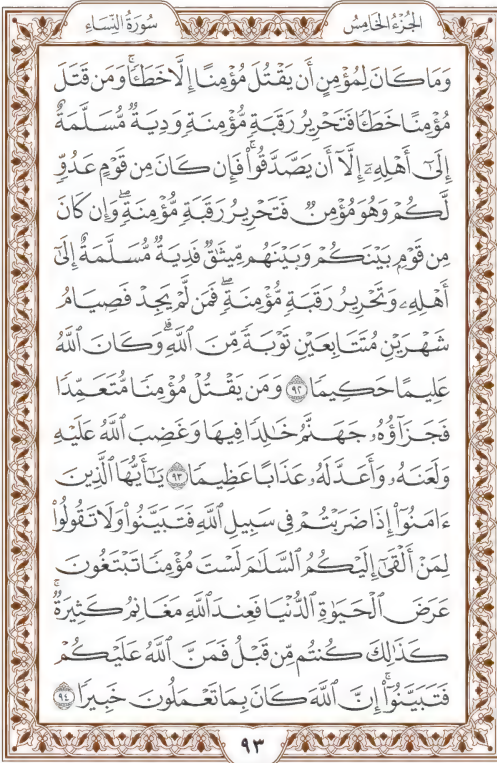 الجُزْءُ الخَامِسُ
سُورَةُ النِّسَاءِ
وَمَا كَانَ لِمُؤْمِنٍ أَن يَقْتُلَ مُؤْمِنًا إِلَّا خَطَـًٔا ۚ وَمَن قَتَلَ
مُؤْمِنًا خَطَـًٔا فَتَحْرِيرُ رَقَبَةٍ مُّؤْمِنَةٍ وَدِيَةٌ مُّسَلَّمَةٌ
إِلَىٰٓ أَهْلِهِۦٓ إِلَّآ أَن يَصَّدَّقُوا۟ ۚ فَإِن كَانَ مِن قَوْمٍ عَدُوٍّ
لَّكُمْ وَهُوَ مُؤْمِنٌ فَتَحْرِيرُ رَقَبَةٍ مُّؤْمِنَةٍ ۖ وَإِن كَانَ
مِن قَوْمٍۭ بَيْنَكُمْ وَبَيْنَهُم مِّيثَٰقٌ فَدِيَةٌ مُّسَلَّمَةٌ إِلَىٰٓ
أَهْلِهِۦ وَتَحْرِيرُ رَقَبَةٍ مُّؤْمِنَةٍ ۖ فَمَن لَّمْ يَجِدْ فَصِيَامُ
شَهْرَيْنِ مُتَتَابِعَيْنِ تَوْبَةً مِّنَ ٱللَّهِ ۗ وَكَانَ ٱللَّهُ
عَلِيمًا حَكِيمًا ٩٢ وَمَن يَقْتُلْ مُؤْمِنًا مُّتَعَمِّدًا
فَجَزَآؤُهُۥ جَهَنَّمُ خَٰلِدًا فِيهَا وَغَضِبَ ٱللَّهُ عَلَيْهِ
وَلَعَنَهُۥ وَأَعَدَّ لَهُۥ عَذَابًا عَظِيمًا ٩٣ يَٰٓأَيُّهَا ٱلَّذِينَ
ءَامَنُوٓا۟ إِذَا ضَرَبْتُمْ فِى سَبِيلِ ٱللَّهِ فَتَبَيَّنُوا۟ وَلَا تَقُولُوا۟
لِمَنْ أَلْقَىٰٓ إِلَيْكُمُ ٱلسَّلَٰمَ لَسْتَ مُؤْمِنًا تَبْتَغُونَ
عَرَضَ ٱلْحَيَوٰةِ ٱلدُّنْيَا فَعِندَ ٱللَّهِ مَغَانِمُ كَثِيرَةٌ ۚ
كَذَٰلِكَ كُنتُم مِّن قَبْلُ فَمَنَّ ٱللَّهُ عَلَيْكُمْ
فَتَبَيَّنُوٓا۟ ۚ إِنَّ ٱللَّهَ كَانَ بِمَا تَعْمَلُونَ خَبِيرًا ٩٤
٩٣